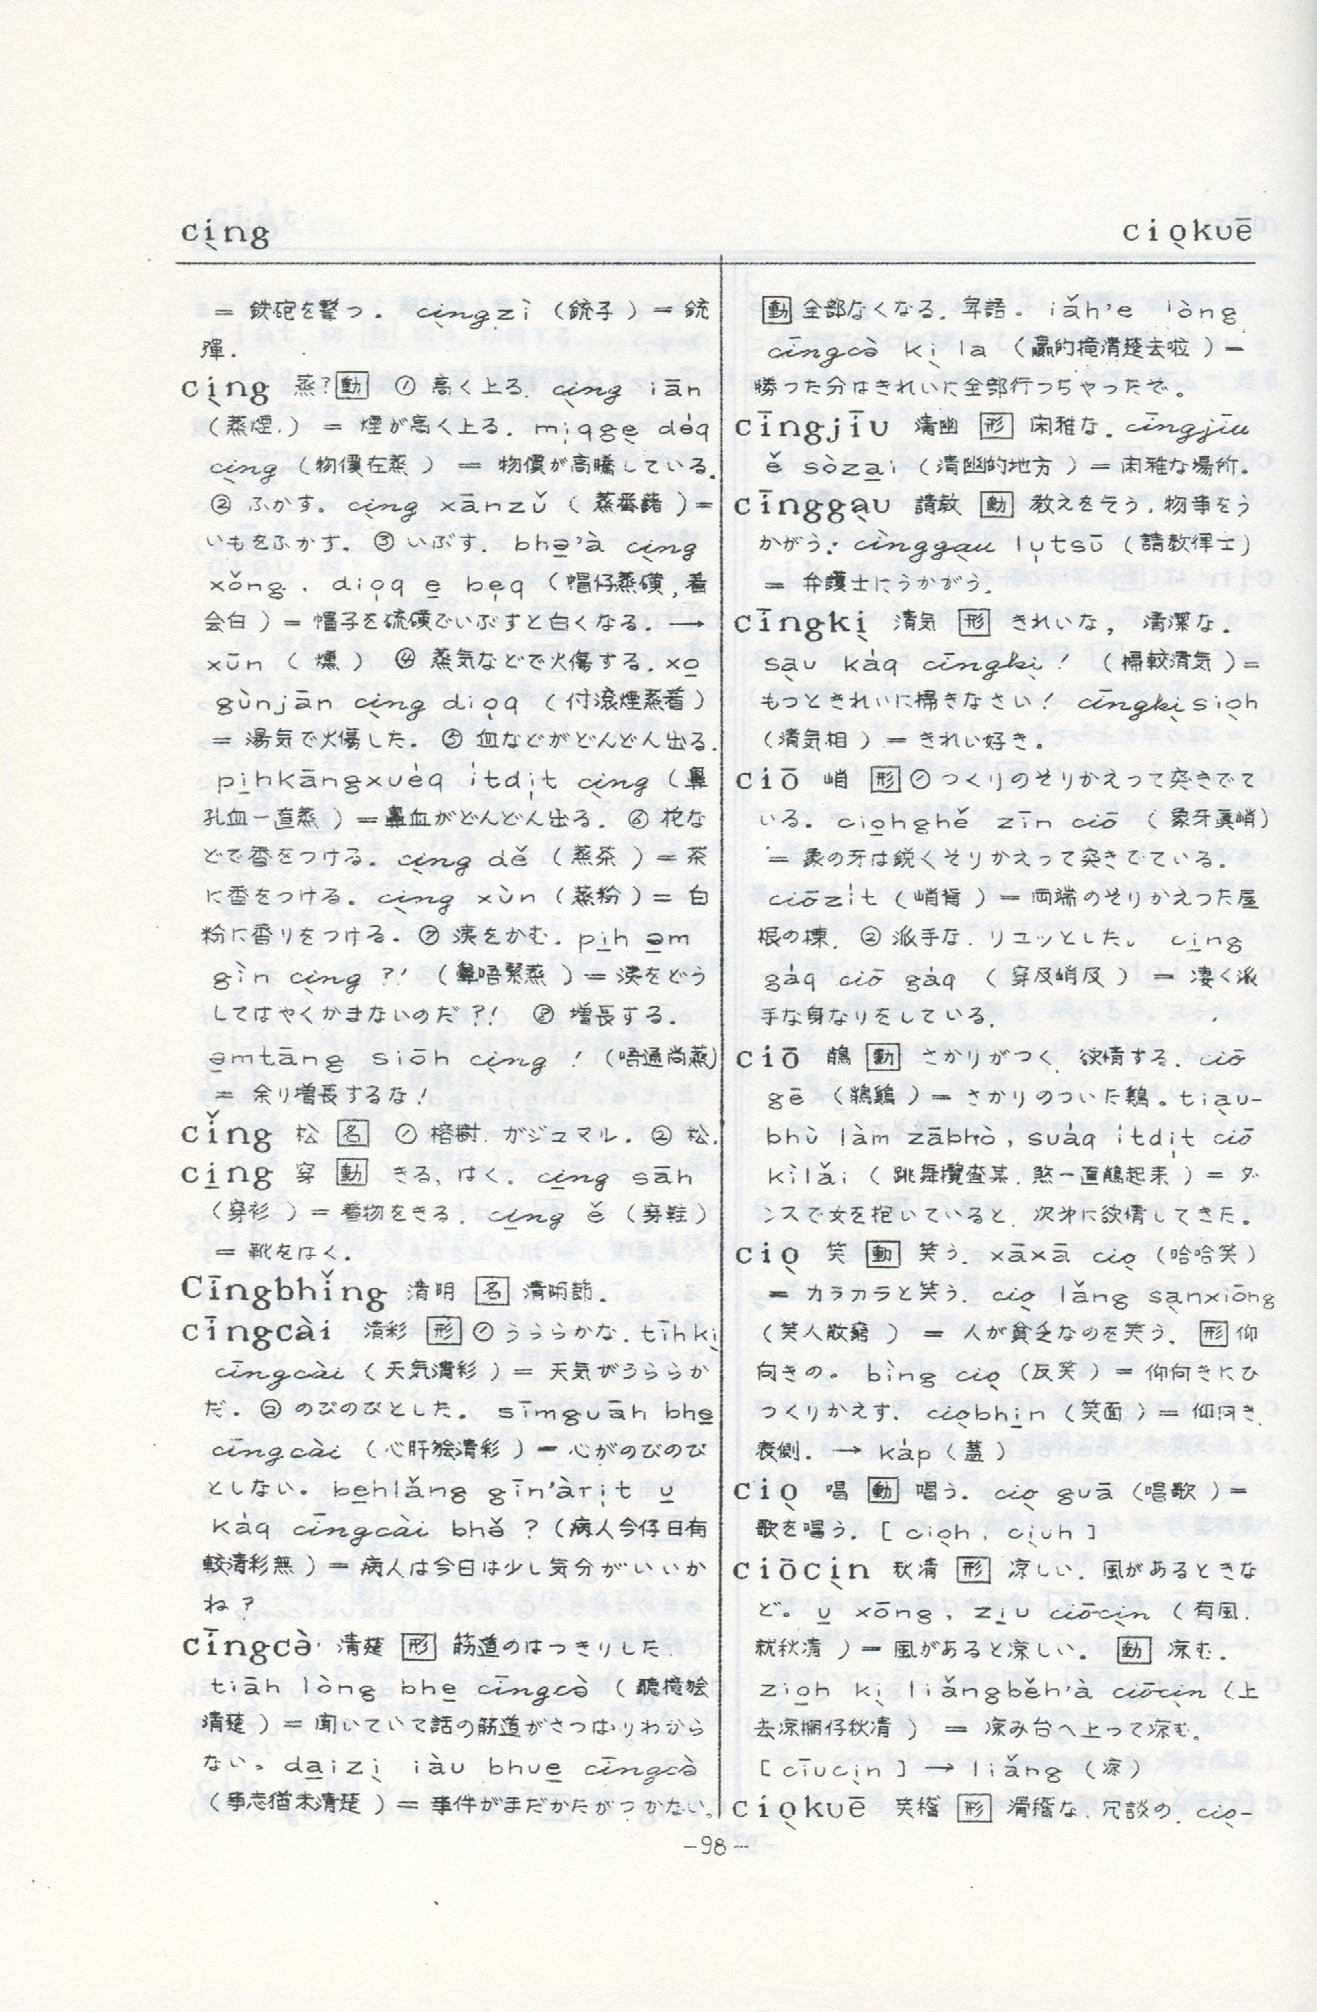 cịng
ciọkuē
= 鉄砲を撃つ. cịngzì (銃子) = 銃
弾.
cịng 蒸? 動 ① 高く上る. cịng iān
(蒸煙.) = 煙が高く上る. mịqgẹ dėq
cịng (物價在蒸) = 物價が高騰している.
② ふかす. cịng xānzŭ (蒸番藷) =
いもをふかす. ③ いぶす. bhə̱'à cịng
xǒng. diọq e̱ bẹq (帽仔蒸磺,着
会白) = 帽子を硫磺でいぶすと白くなる. →
xūn (燻) ④ 蒸気などで火傷する. xo̱
gùnjān cịng diọq (付滾煙蒸着)
= 湯気で火傷した. ⑤ 血などがどんどん出る.
pi̱hkāngxuėq ı̍tdı̣t cịng (鼻
孔血一直蒸) = 鼻血がどんどん出る. ⑥ 花な
どで香をつける. cịng dě (蒸茶) = 茶
に香をつける. cịng xùn (蒸粉) = 白
粉に香りをつける. ⑦ 洟をかむ. pi̱h ə̱m
gìn cịng ?! (鼻唔緊蒸) = 洟をどう
してはやくかまないのだ?! ⑧ 増長する.
ə̱mtāng siōh cịng! (唔通尚蒸)
= 余り増長するな!
cǐng 松 名 ① 榕樹. ガジュマル. ② 松.
ci̱ng 穿 動 きる, はく. ci̱ng sāh
(穿衫) = 着物をきる. ci̱ng ě (穿鞋)
= 靴をはく.
Cīngbhǐng 清明 名 清明節.
cīngcài 清彩 形 ① うららかな. tīhkị
cīngcài (天気清彩) = 天気がうららか
だ. ② のびのびとした. sīmguāh bhe̱
cīngcài (心肝獪清彩) = 心がのびのび
としない. be̱hlǎng gīn'àrịt u̱
kȧq cīngcài bhə̌ ? (病人今仔日有
較清彩無) = 病人は今日は少し気分がいいか
ね?
cīngcə̀ 清楚 形 筋道のはっきりした.
tiāh lòng bhe̱ cīngcə̀ (聽挵獪
清楚) = 聞いていて話の筋道がさっぱりわから
ない. da̱izị iàu bhue̱ cīngcə̀
(事志猶未清楚) = 事件がまだかたがつかない.
動 全部なくなる. 卑語. iǎh'e lòng
cīngcə̀ kị la (贏的挵清楚去啦) =
勝った分はきれいに全部行っちゃったぞ.
cīngjīu 清幽 形 閑雅な. cīngjīu
ě sòza̱i (清幽的地方) = 閑雅な場所.
cìnggạu 請教 動 教えを乞う, 物事をう
かがう. cìnggạu lụtsū (請教律士)
= 弁護士にうかがう.
cīngkị 清気 形 きれいな, 清潔な.
sạu kȧq cīngkị! (掃較清気) =
もっときれいに掃きなさい! cīngkịsiọh
(清気相) = きれい好き.
ciō 峭 形 ① つくりのそりかえって突きでて
いる. cio̱hghě zīn ciō (象牙眞峭)
= 象の牙は鋭くそりかえって突きでている.
ciōzı̍t (峭脊) = 両端のそりかえった屋
根の棟. ② 派手な. リュッとした. ci̱ng
gȧq ciō gȧq (穿及峭及) = 凄く派
手な身なりをしている.
ciō 鵤 動 さかりがつく, 欲情する. ciō
gē (鵤鷄) = さかりのついた鶏. tiạu-
bhù làm zābhò, suȧq ı̍tdı̣t ciō
kìlǎi (跳舞攬査某, 煞一直鵤起来) = ダ
ンスで女を抱いていると, 次第に欲情してきた.
ciọ 笑 動 笑う. xāxā ciọ (哈哈笑)
= カラカラと笑う. ciọ lǎng sạnxiōng
(笑人散窮) = 人が貧乏なのを笑う. 形 仰
向きの. bìng ciọ (反笑) = 仰向きにひ
っくりかえす. ciọbhi̱n (笑面) = 仰向き,
表側. → kȧp (蓋)
ciọ 唱 動 唱う. ciọ guā (唱歌) =
歌を唱う. [ciọh, cịuh]
ciōcịn 秋凊 形 涼しい. 風があるときな
ど. u̱ xōng, zi̱u ciōcịn (有風,
就秋凊) = 風があると涼しい. 動 涼む.
zio̱h kị liǎngběh'à ciōcịn (上
去涼棚仔秋凊) = 涼み台へ上って涼む.
[cīucịn] → liǎng (涼)
ciọkuē 笑稽 形 滑稽な. 冗談の. ciọ-
-98-